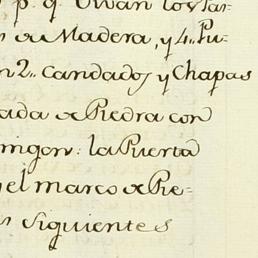 p. q. Vivan los Par-
s de Madera, y 4.. Pu-
n 2.. candados y Chapas
ada de Piedra con
migon: la Puerta
y el marco de Pie-
s siguientes